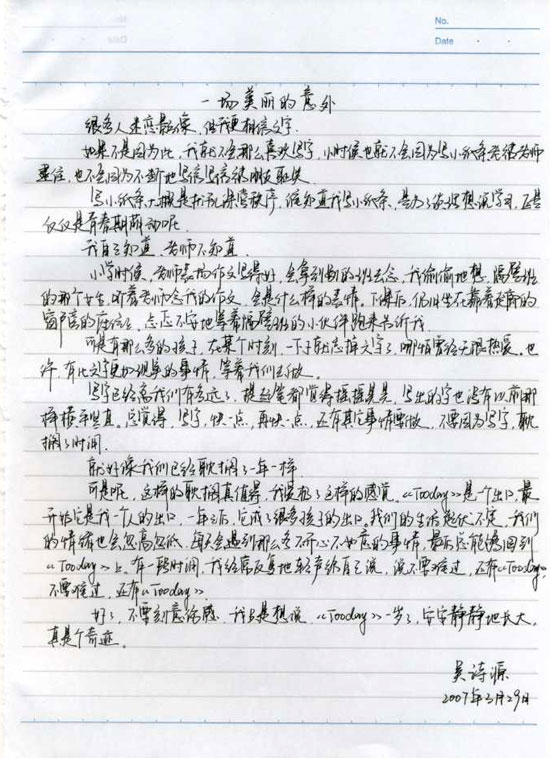 No.
Date
一场美丽的意外
很多人迷恋影像，但我更相信文字。
如果不是因为此，我就不会那么喜欢写字，小时候也就不会因为写小纸条老很老师
逮住，也不会因为不断地写信写信很刚友联
写小纸条大概是扰乱课堂秩序，谁知道我写小纸条，是为了谈理想说学习，还是
仅仅是青春期萌动呢
我自己知道，老师不知道
小学时候，老师表扬作文写得好，会拿到别的班去念，我偷偷地想，隔壁班
的那个女生，听着老师念我的作文，会是什么样的表情，下课后，仍旧坐在靠着走廊的
窗户旁的座位上，忐忑不安地等着隔壁班的小伙伴跑来告诉我。
可是有那么多的孩子，在某个时刻，一下子就忘掉文字了，哪怕曾经无限热爱，也
许，有比文字更加艰辛的事情，等着我们去做。
写字已经离我们有多远了，提起笔都觉得摇摇晃晃，写出的字也没有以前那
样横平竖直。总觉得，写字，快一点，再快一点，还有其它事情要做，不要因为写字，耽
搁了时间。
就好像我们已经耽搁了一年一样
可是呢，这样的耽搁真值得，我爱极了这样的感觉。《Tooday》是一个出口，最
开始它是我一个人的出口，一年之后，它成了很多孩子的出口。我们的生活起伏不定，我们
的情绪也会忽高忽低，每天会遇到那么多不开心不如意的事情，最后总能够回到
《Tooday》上，有一段时间，我经常反复地轻声给自己说，说不要难过，还有《Tooday》，
不要难过，还有《Tooday》
好了，不要刻意伤感，我只是想说，《Tooday》一岁了，安安静静地长大，
真是个奇迹。
吴诗源
2007年3月29日